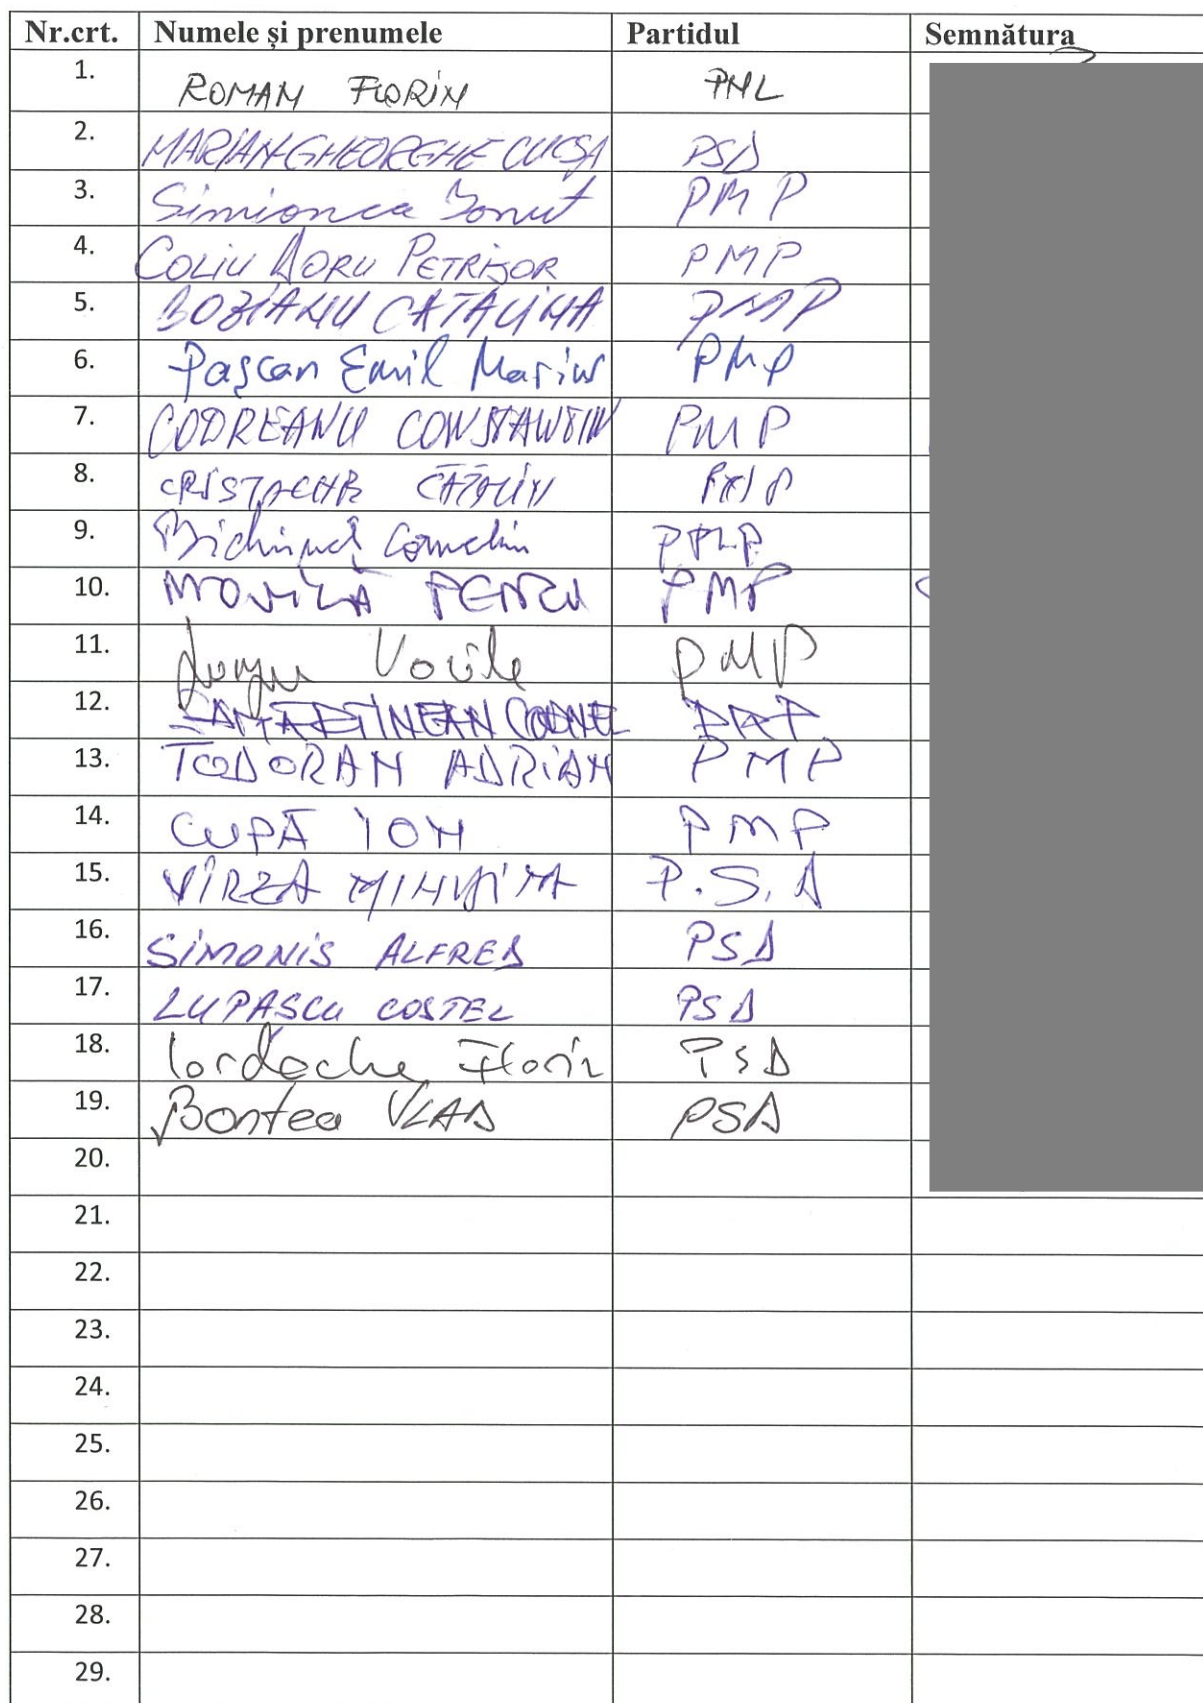 Nr.crt. Numele și prenumele Partidul Semnătura
1. ROMAN FLORIN PNL
2. MARIAN GHEORGHE CUCȘA PSD
3. Simionca Ionut PMP
4. COLIU DORU PETRIȘOR PMP
5. BOZIANU CATALINA PMP
6. Pașcan Emil Marius PMP
7. CODREANU CONSTANTIN PMP
8. CRISTACHE CĂTĂLIN PMP
9. Bichineț Corneliu PMP
10. MOVILĂ PETRU PMP
11. PMP
12. CORNEL
13. TODORAN ADRIAN PMP
14. CUPĂ ION PMP
15. VÎRZA MIHĂIȚA P.S.D
16. SIMONIS ALFRED PSD
17. LUPASCU COSTEL PSD
18. Iordache Florin PSD
19. Bontea VLAD PSD
20.
21.
22.
23.
24.
25.
26.
27.
28.
29.